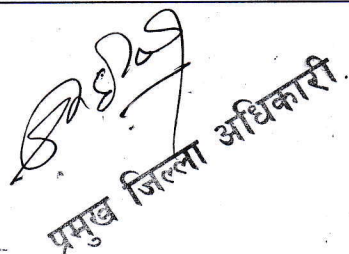 प्रमुख जिल्ला अधिकारी.